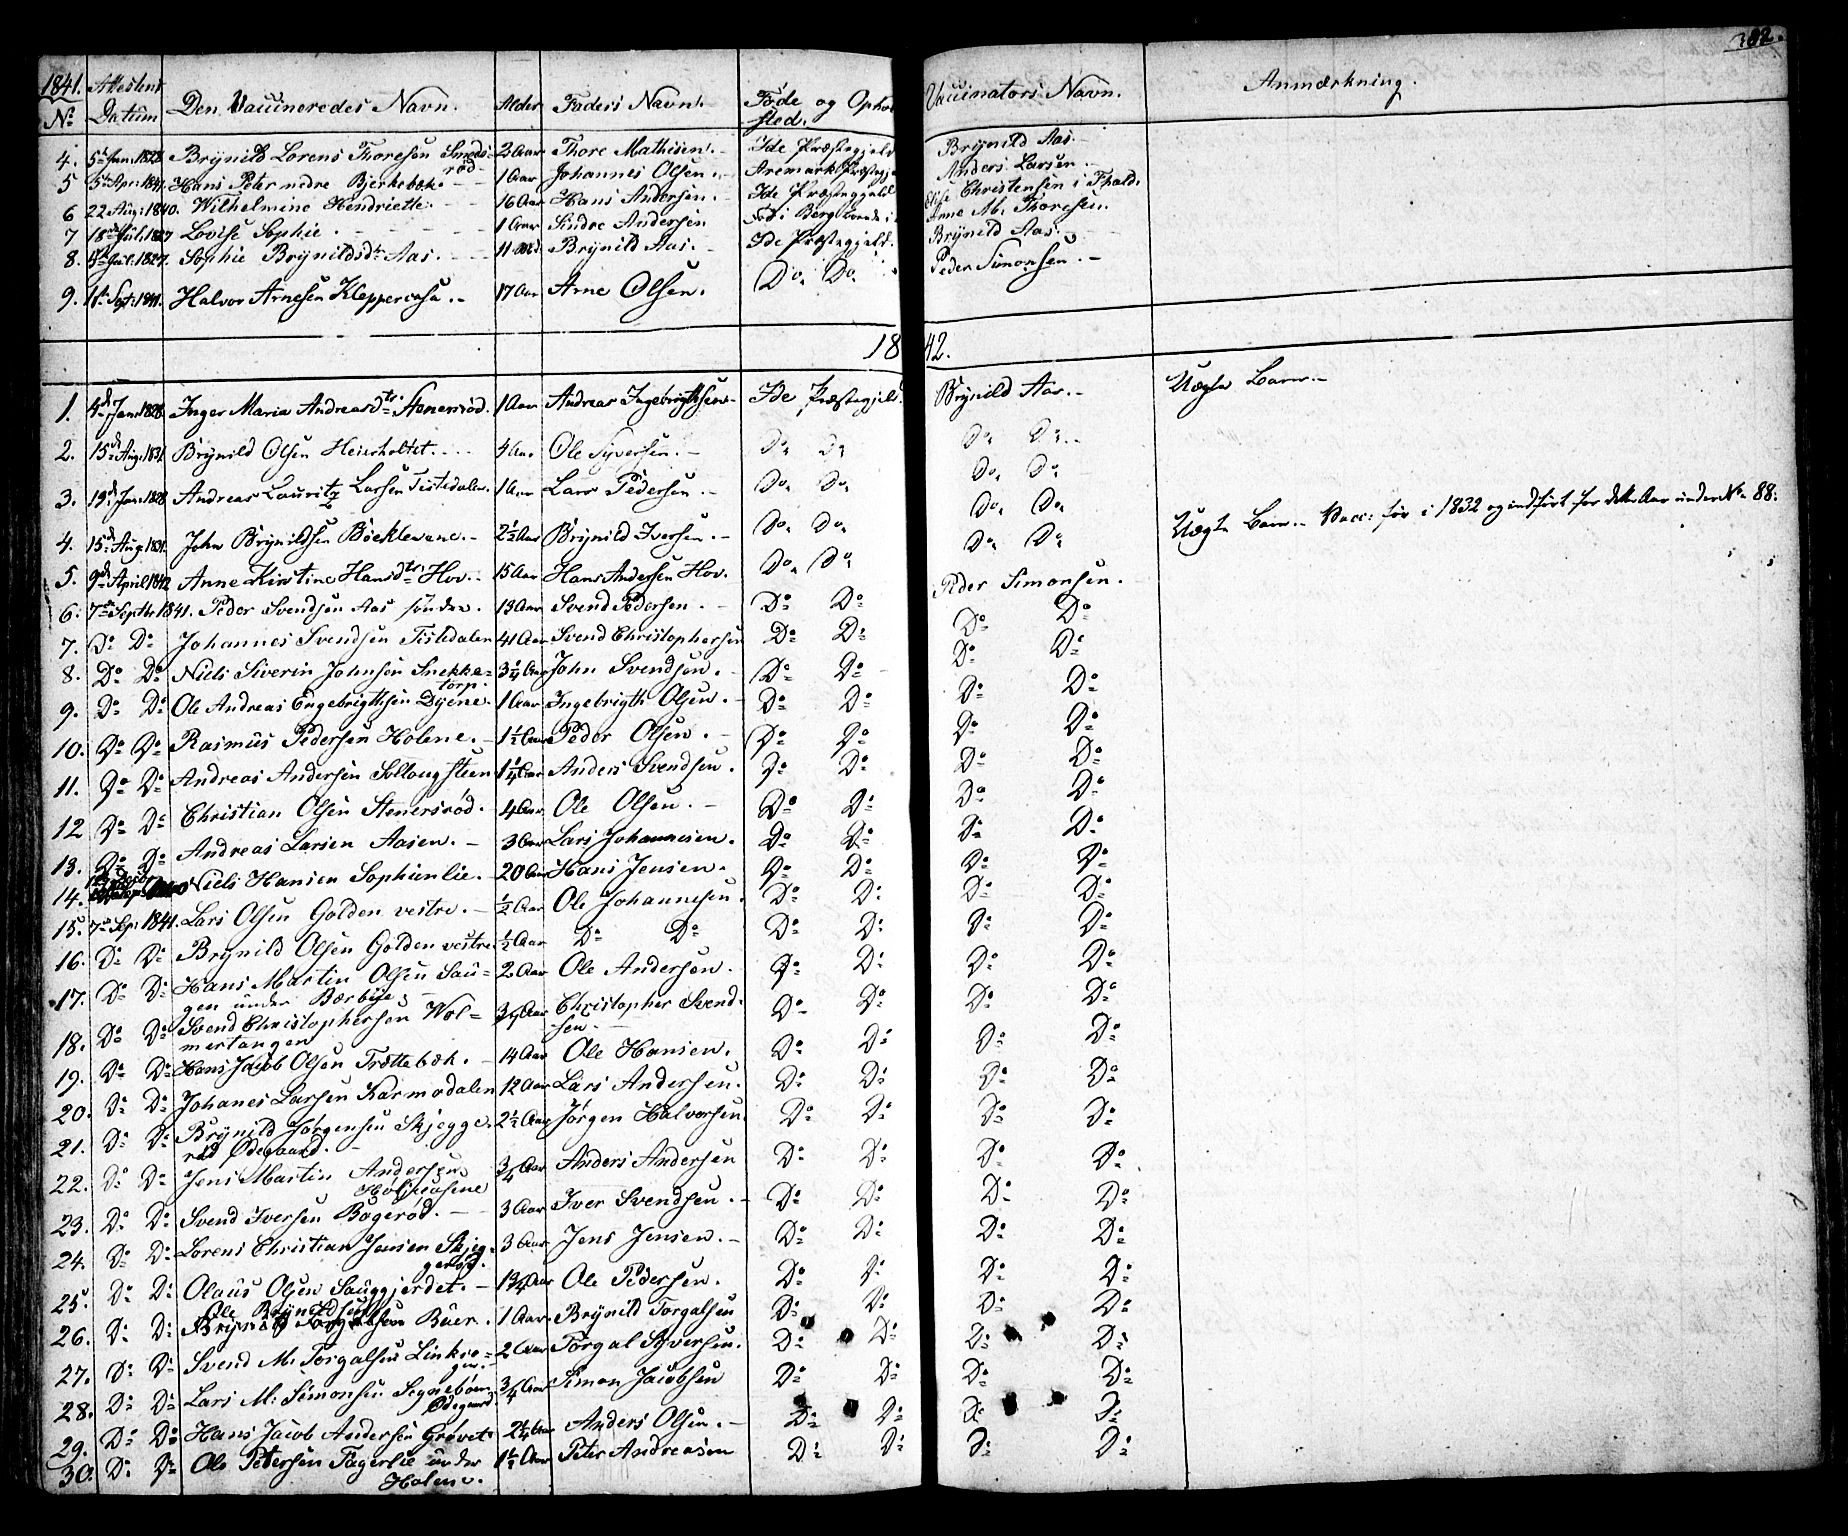 382.
1841. Attestens
No Datum Den Vaccineredes Navn. Alder Faders Navn. Føde og Opho
sted. Vaccinators Navn. Anmærkning.
4. 5te Jan: 1828 Brynild Lorens Thoresen Smeds- 2 Aar Thore Mathisen. Ide Præstegjeld Brynild Aas.
rød
5 Apr: 1841. Hans Peter nedre Bjerkebæk 1 Aar Johannes Olsen. Aremark Præstegj Anders Larsen.
6 22 Aug: 1840. Wilhelmine Hendriette. 16 Aar Hans Andersen. Ide Præstegjeld Elise Christensen i Fhald.
7 18 Jul: 1837 Lovise Sophie. 1 Aar Sindre Andersen Fød i Berg Anne M. Thoresen.
8. Jul. 1827. Sophie Brynildsdr Aas. 11 Md. Brynild Aas. Ide Præstegjeld. Brynild Aas.
9. 1 Sept: 1841. Halvor Arnesen Kleppercasa. 17 Aar Arne Olsen. Do. Do. Peder Simonsen.
1842.
1. 4de Jan: 1828. Inger Maria Andreasdtr Stenersrød. 1 Aar Andreas Ingebrigthsen Ide Præstegjeld Brynild Aas. Uægte Barn.
2. 15de Aug: 1831. Brynild Olsen Heierholtet. 4 Aar Ole Syversen. Do. Do. Do. Do.
3. 19de Jan: 1828 Andreas Lauritz Larsen Tistedalen. 1 Aar Lars Pedersen. Do. Do. Do. Do.
4. 15de Aug: 1831. John Brynildsen Böeklevene. 2½ Aar Brynild Iversen. Do. Do. Do. Do.
5. 9de April 1842 Anne Kirstine Hansdtr Hov. 15 Aar Hans Andersen Hov. Do. Do. Do. Do. Uægte Barn. Vacc: før i 1832 og indført for dette Aar under No 88.
6. 7de Septbr 1841. Peder Svendsen Aas søndre. 13 Aar Svend Pedersen. Do Do Peder Simonsen.
7. Do Do Johannes Svendsen Tistedalen 41 Aar Svend Christophersen Do Do Do Do
8. Do Do Niels Siverin Johnsen Snekke= 3¼ Aar John Svendsen. Do Do Do Do
torp.
9. Do Do Ole Andreas Engebrigthsen Dyene. 1 Aar Ingebrigth Olsen. Do Do Do Do
10. Do Do Rasmus Pedersen Holene. 1½ Aar Peder Olsen. Do Do Do Do
11. Do Do Andreas Andersen Sollougsteen 1¼ Aar Anders Svendsen. Do Do Do Do
12 Do Do Christian Olsen Stenersrød. 4 Aar Ole Olsen. Do Do Do Do
13. Do Do Andreas Larsen Aasen. 3 Aar Lars Johannesen. Do Do Do Do
14. Niels Hansen Sophienlie. 20 Aar Hans Jensen. Do Do Do Do
15. 7de Sep: 1841. Lars Olsen Golden vestre. ½ Aar Ole Johannesen. Do Do Do Do
16. Do Do Brynild Olsen Golden vestre ½ Aar Do Do Do Do Do Do
17. Do Do Hans Martin Olsen Sau= 2 Aar Ole Andersen. Do Do Do Do
gen under Bærbye
18. Do Do Svend Christophersen Wol= ¾ Aar Christopher Svend- Do Do Do Do
mertangen sen.
19. Do Do Hans Jacob Olsen Trættebæk. 14 Aar Ole Hansen. Do Do Do Do
20. Do Do Johanes Larsen Karmodalen 12 Aar Lars Andersen. Do Do Do Do
21. Do Do Brynild Jørgensen Skjegge 2½ Aar Jørgen Halvorsen. Do Do Do Do
rød Ødegaard.
22. Do Do Jens Martin Andersen ¾ Aar Anders Andersen Do Do Do Do
23. Do Do Svend Iversen Bøgerød. 3 Aar Iver Svendsen. Do Do Do Do
24. Do Do Lorens Christian Jensen Skjeg- 3 Aar Jens Jensen. Do Do Do Do
gerød.
25. Do Do Olaus Olsen Sauggjerdet. 1¾ Aar Ole Pedersen. Do Do Do Do
Ole Brynildsen
26. Do Do Buer. 1 Aar. Brynild Torgalsen Do Do Do Do
27. Do Do Svend M. Torgalsen 2 Aar Torgal Syversen. Do Do Do Do
28. Do Do Lars M: Simonsen Segneböen ¾ Aar Simon Jacobsen Do Do Do Do
Ødegaard
29. Do Do Hans Jacob Andersen Grøvet. 2¼ Aar Anders Olsen. Do Do Do Do
30. Do Do Ole Petersen Fagerlie under 1½ Aar Peter Andreasen Do Do Do Do
Holene.